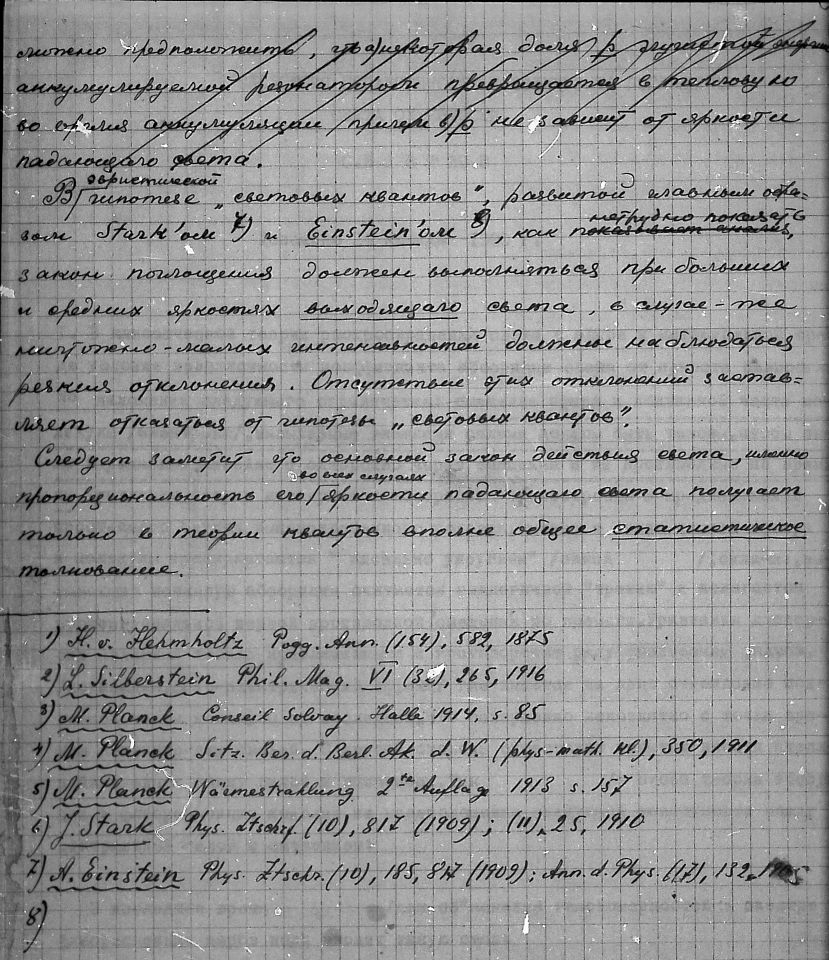 можно предположить, что а) некоторая доля p лучистой энергии
аккумулируемой резонатором превращается в тепловую
во время аккумуляции причем в) p не зависит от яркости
падающаго света.
В эвристической гипотезе „световых квантов“, развитой главным обра=
зом Stark'ом 7) и Einstein'ом 8), как нетрудно показать показывает анализ,
закон поглощения должен выполняться при больших
и средних яркостях выходящаго света, в случае-же
ничтожно-малых интенсивностей должны наблюдаться
резкия отклонения. Отсутствие этих отклонений застав=
ляет отказаться от гипотезы „световых квантов“.
Следует заметит что основной закон действия света, именно
пропорциональность его во всех случаях яркости падающаго света получает
только в теории квантов вполне общее статистическое
толкование.
1) H. v. Helmholtz Pogg. Ann. (154), 582, 1875
2) L. Silberstein Phil. Mag. VI (32), 265, 1916
3) M. Planck Conseil Solvay. Halle 1914, s. 85
4) M. Planck Sitz. Ber. d. Berl. Ak. d. W. (phys-math. Kl.), 350, 1911
5) M. Planck Wärmestrahlung 2te Auflage 1913 s. 157
6) J. Stark Phys. Ztschrf. (10), 817 (1909); (11), 25, 1910
7) A. Einstein Phys. Ztschr. (10), 185, 817 (1909); Ann. d. Phys. (17), 132, 1905
8)